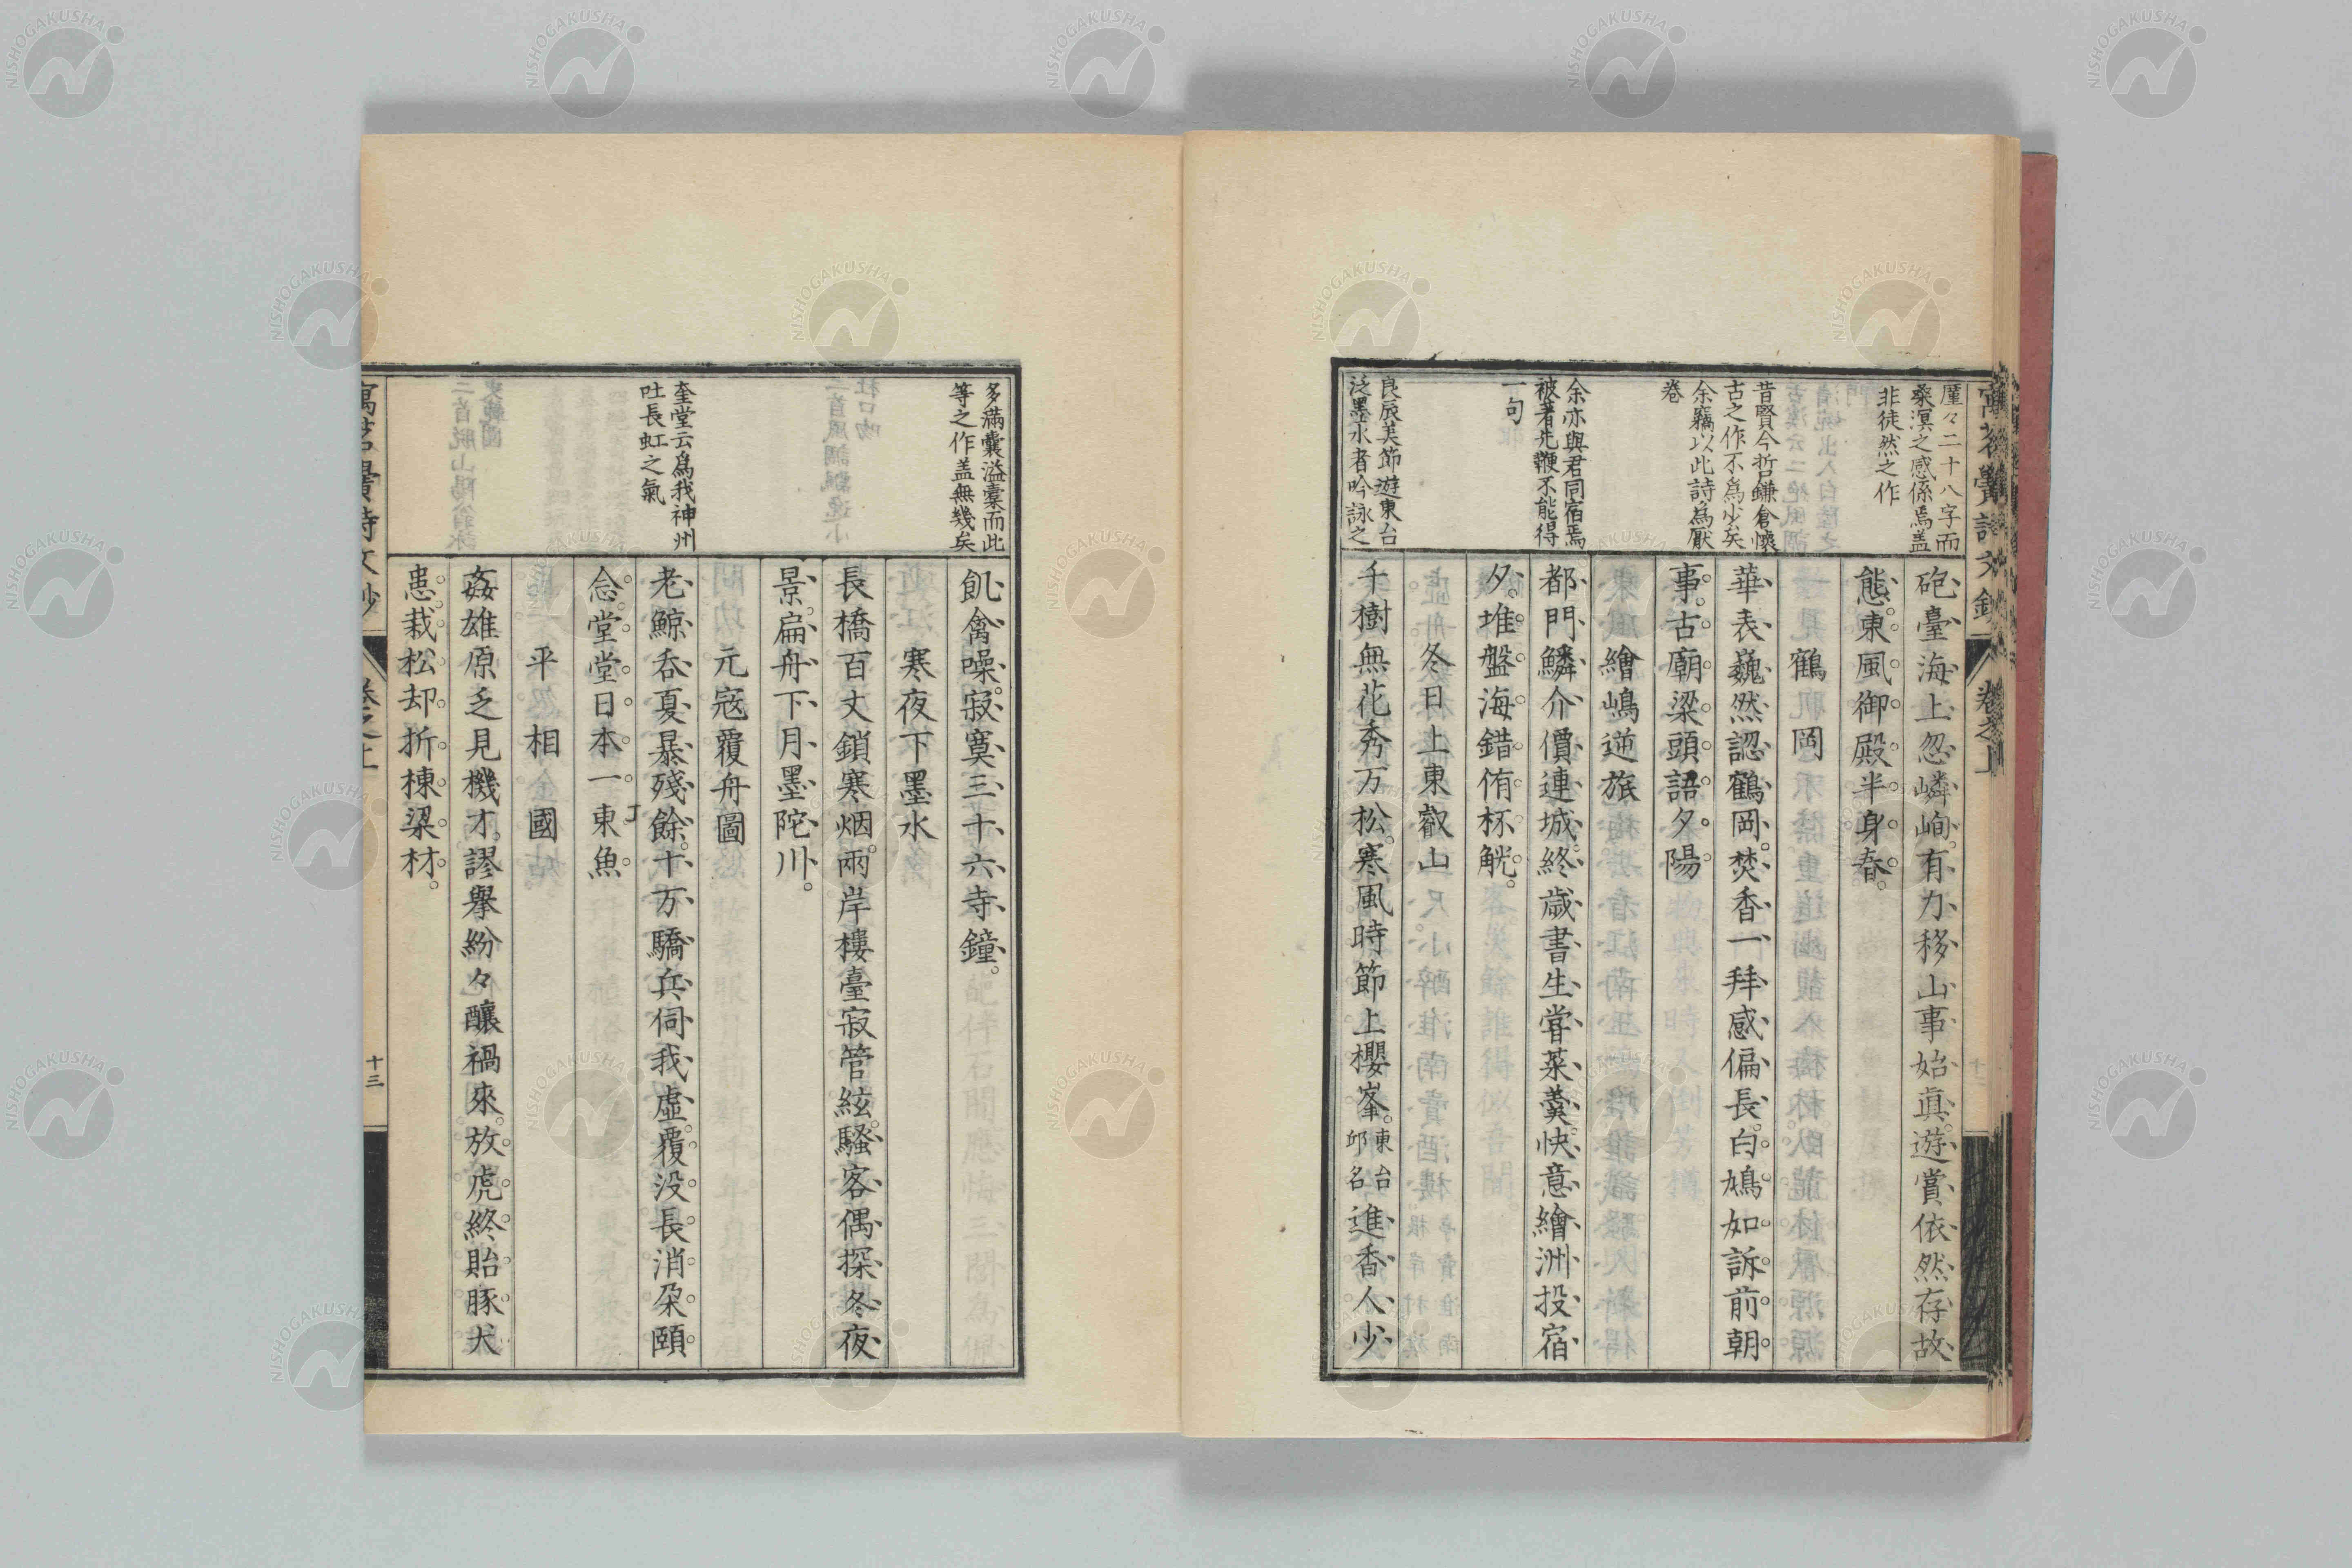 厪々二十八字而
桑溟之感係焉盖
非徒然之作
昔賢今哲鎌倉懷
古之作不爲少矣
余竊以此詩爲厭
卷
余亦與君同宿焉
被著先鞭不能得
一句
良辰美節遊東台
泛墨水者吟詠之
砲臺海上忽嶙峋。有力移山事始眞。遊賞依然存故
態。東風御殿半身春。
鶴岡
華表巍然認鶴岡。焚香一拜感偏長。白鳩如訴前朝
事。古廟梁頭語夕陽
繪嶋逆旅
都門鱗介價連城。終歲書生甞菜羹。快意繪洲投宿
夕。堆盤海錯侑杯觥。
冬日上東叡山
千樹無花秀万松。寒風時節上櫻峯。東台邱名進香人少
卷之上
多滿囊溢橐而此
等之作盖無幾矣
奎堂云爲我神州
吐長虹之氣
飢禽噪。寂寞三十六寺鐘。
寒夜下墨水
長橋百丈鎖寒烟。兩岸樓臺寂管絃。騷客偶探冬夜
景。扁舟下月墨陀川。
元寇覆舟圖
老鯨呑夏暴殘餘。十万驕兵伺我虛。覆没長消朶頤
念。堂堂日本一東魚
平相國
姦雄原乏見機才。謬擧紛々釀禍來。放虎終貽豚犬
恚。栽松却折棟梁材。
卷之上
十三